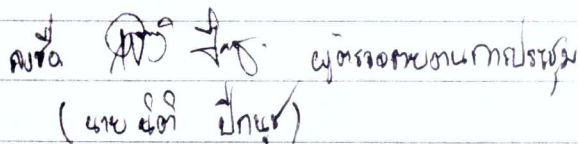 ลงชื่อ ผู้ตรวจรายงานการประชุม
(นาย นิติ ปีกนุช)